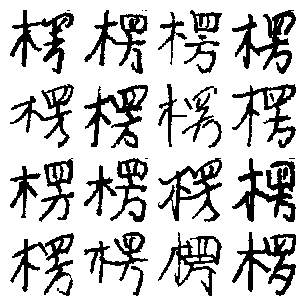 楞楞楞楞
楞楞楞楞
楞楞楞楞
楞楞楞楞